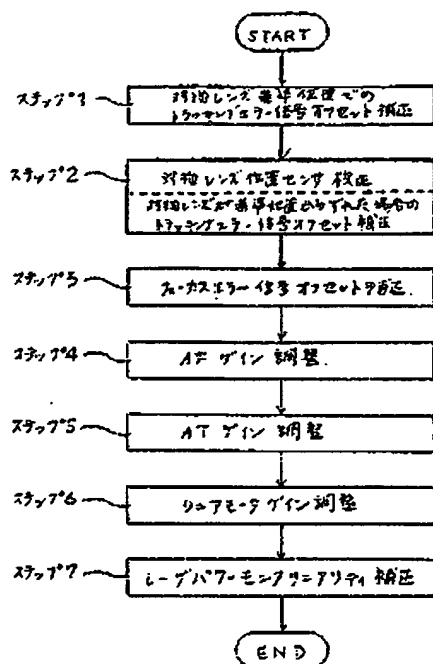 START
ステップ1
対物レンズ基準位置での
トラッキングエラー信号オフセット補正
ステップ2
対物レンズ位置センサ校正
対物レンズが基準位置からずれた場合の
トラッキングエラー信号オフセット補正
ステップ3
フォーカスエラー信号オフセット補正
ステップ4
AFゲイン調整
ステップ5
ATゲイン調整
ステップ6
リニアモータゲイン調整
ステップ7
レーザパワーモニタリニアリティ補正
END